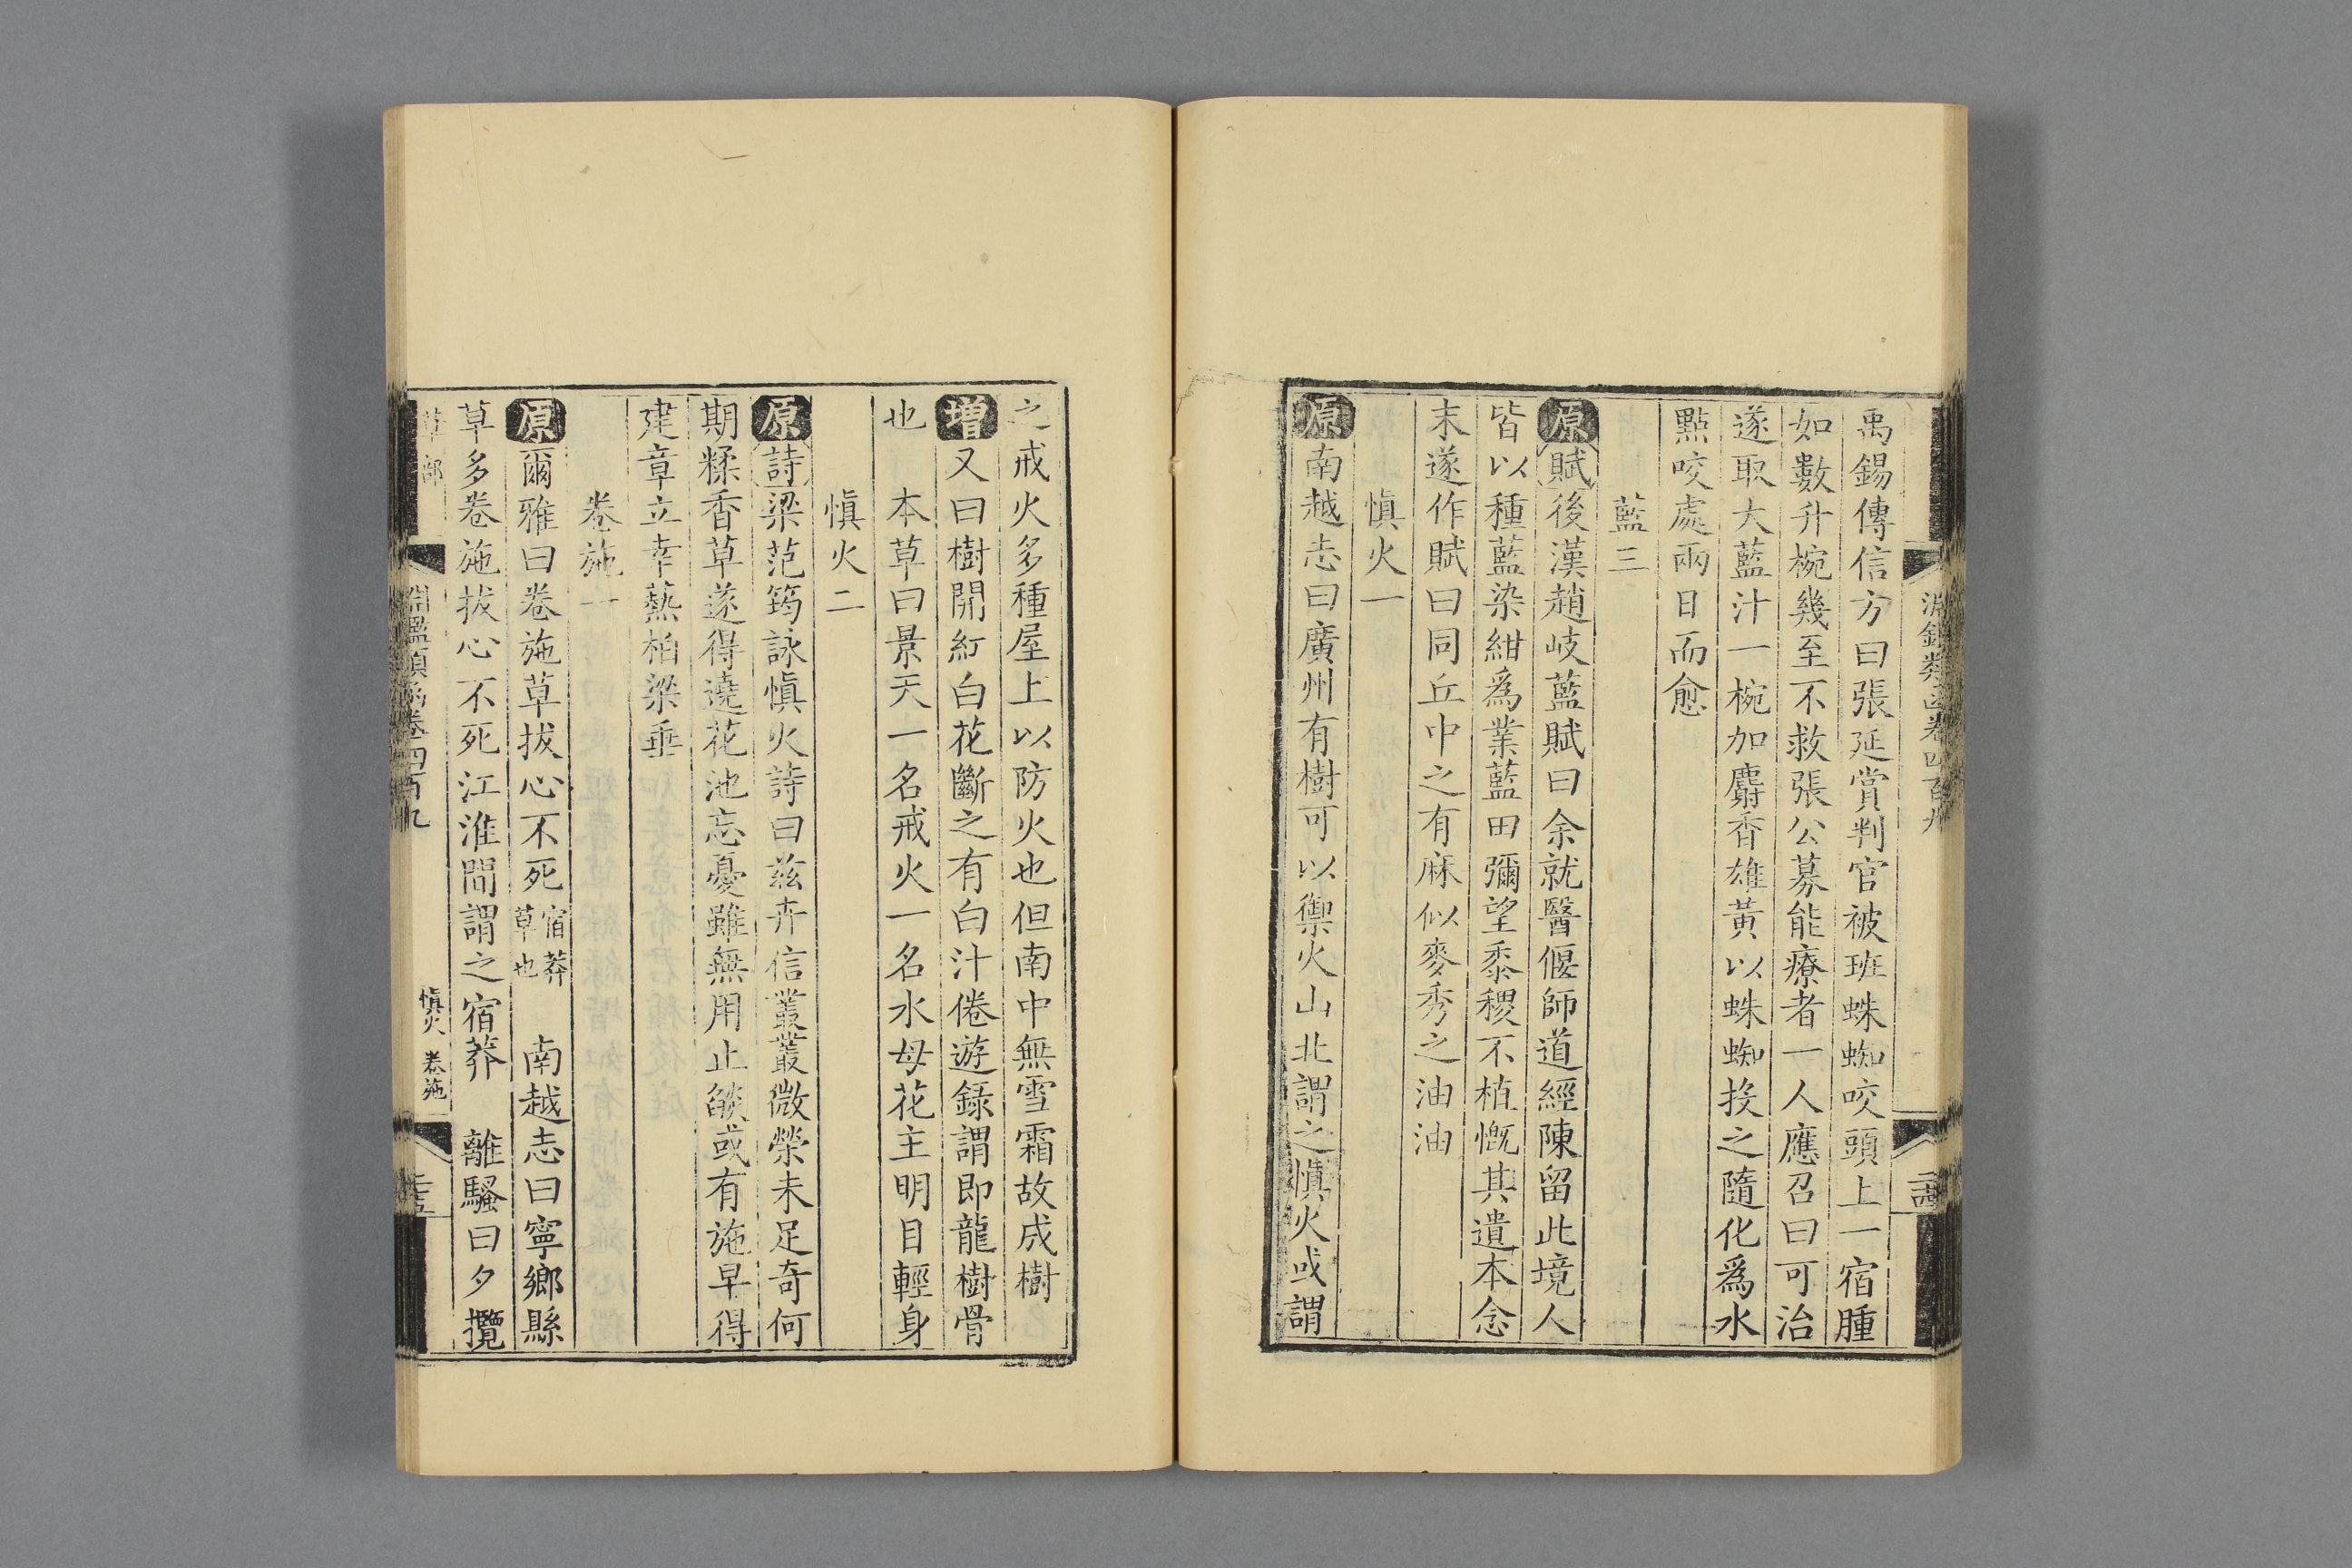 禹錫傳信方曰張延賞判官被班蛛蜘咬頭上一宿腫
如數升椀幾至不救張公募能療者一人應召曰可治
遂取大藍汁一椀加麝香雄黃以蛛蜘投之隨化為水
點咬處兩日而愈
藍三
原賦後漢趙岐藍賦曰余就醫偃師道經陳留此境人
皆以種藍染紺為業藍田彌望黍稷不植慨其遺本念
末遂作賦曰同丘中之有麻似麥秀之油油
慎火一
原南越志曰廣州有樹可以禦火山北謂之慎火或謂
之戒火多種屋上以防火也但南中無雪霜故成樹
增又曰樹開紅白花斷之有白汁倦遊錄謂即龍樹骨
也　本草曰景天一名戒火一名水母花主明目輕身
慎火二
原詩梁范筠詠慎火詩曰茲卉信叢叢微榮未足奇何
期糅香草遂得遶花池忘憂雖無用止燄或有施早得
建章立幸爇柏梁垂
卷施一
原爾雅曰卷施草拔心不死宿莽草也　南越志曰寧鄉縣
草多卷施拔心不死江淮間謂之宿莽　離騷曰夕攬
草部
淵鑑類函卷四百九
慎火　卷施
二十五